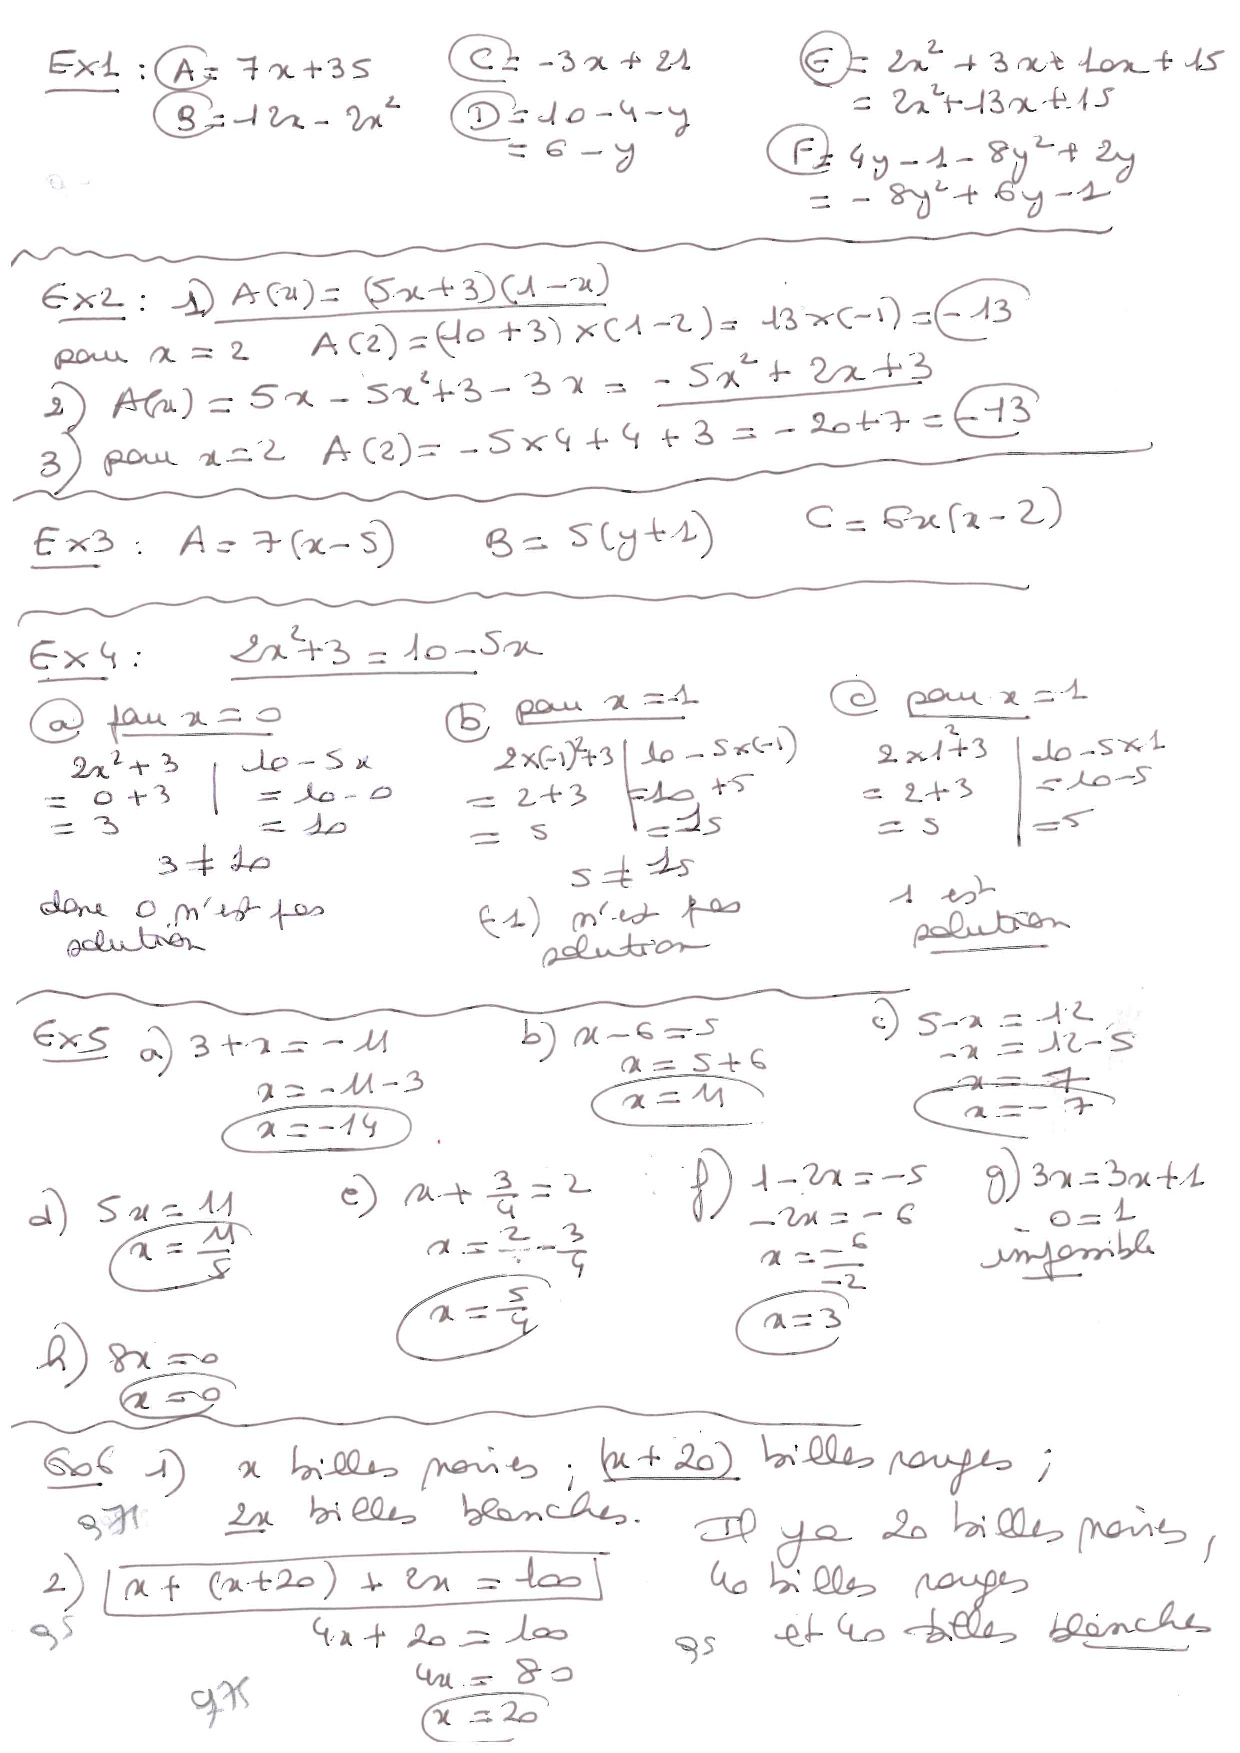 Ex1 : A = 7x+35
B = 12x - 2x²
C = -3x + 21
D = 10 - 4 - y
= 6 - y
E = 2x² + 3x + 10x + 15
= 2x² + 13x + 15
F = 4y - 1 - 8y² + 2y
= - 8y² + 6y - 1
Ex2 : 1) A(x) = (5x+3)(1-x)
pour x = 2 A(2) = (10+3) × (1-2) = 13 × (-1) = -13
2) A(x) = 5x - 5x² + 3 - 3x = - 5x² + 2x + 3
3) pour x = 2 A(2) = - 5×4 + 4 + 3 = - 20 + 7 = -13
Ex3 : A = 7(x-5) B = 5(y+1) C = 6x(x-2)
Ex4 : 2x²+3 = 10-5x
a) pour x = 0
2x²+3 | 10-5x
= 0+3 | = 10-0
= 3 = 10
3 ≠ 10
donc 0 n'est pas
solution
b) pour x = -1
2×(-1)²+3 | 10-5×(-1)
= 2+3 | = 10+5
= 5 | = 15
5 ≠ 15
(-1) n'est pas
solution
c) pour x = 1
2×1²+3 | 10-5×1
= 2+3 | = 10-5
= 5 | = 5
1 est
solution
Ex5 a) 3+x = -11
x = -11-3
x = -14
b) x-6 = 5
x = 5+6
x = 11
c) 5-x = 12
-x = 12-5
x = 7
x = -7
d) 5x = 11
x = 11/5
e) x + 3/4 = 2
x = 2 - 3/4
x = 5/4
f) 1-2x = -5
-2x = -6
x = -6/-2
x = 3
g) 3x = 3x+1
0 = 1
impossible
h) 8x = 0
x = 0
Ex6 1) x billes noires ; (x+20) billes rouges ;
0,75 2x billes blanches.
2) x + (x+20) + 2x = 100
0,5 4x + 20 = 100
4x = 80
0,75 x = 20
Il y a 20 billes noires,
40 billes rouges
0,5 et 40 billes blanches